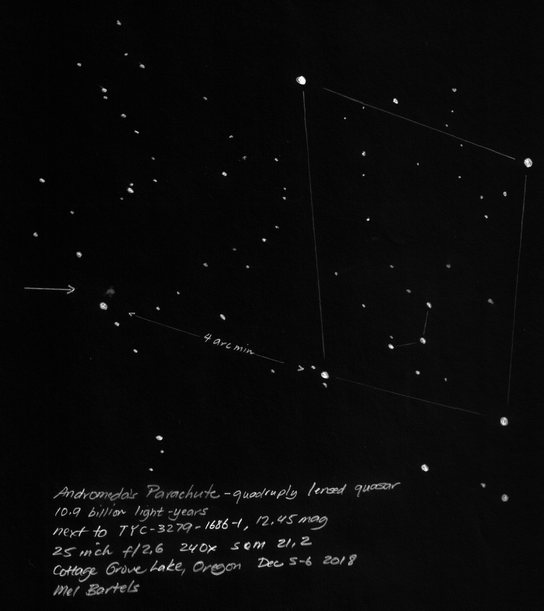 4 arc min
Andromeda's Parachute - quadruply lensed quasar
10.9 billion light-years
next to TYC-3279-1686-1, 12.45 mag
25 inch f/2.6 240x SQM 21.2
Cottage Grove Lake, Oregon Dec 5-6 2018
Mel Bartels